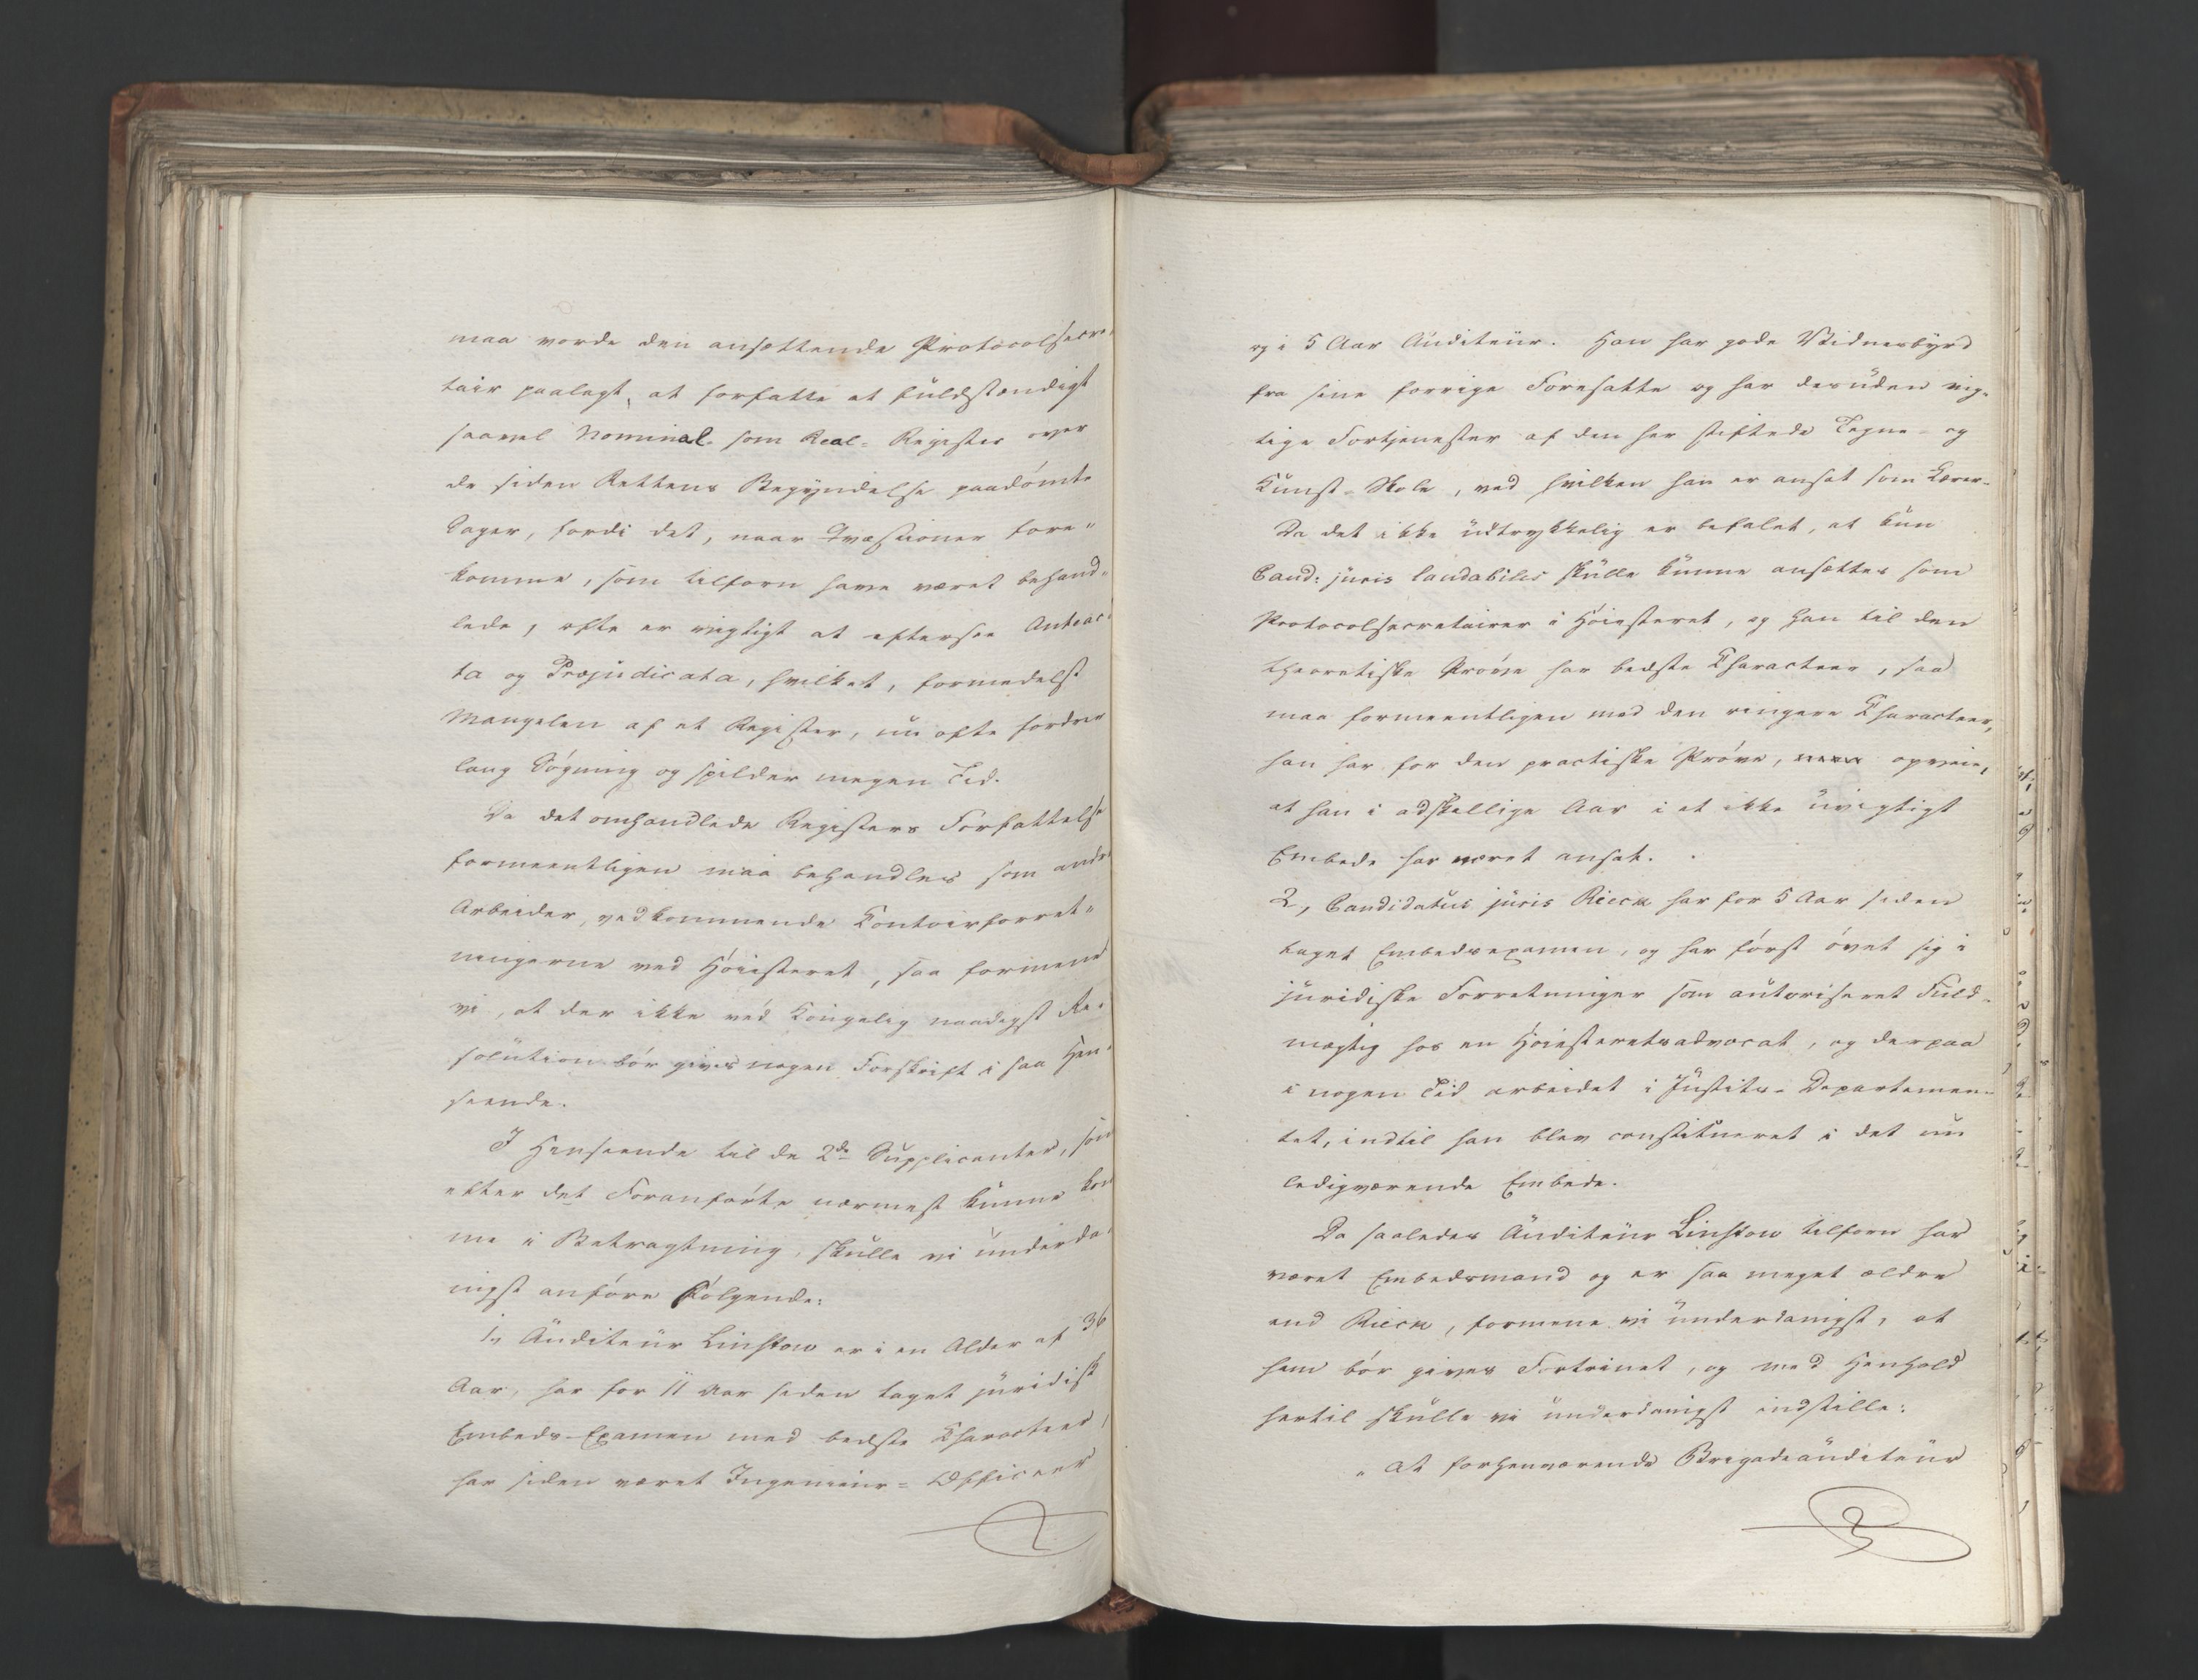 maa vorde den ansættende Protocolsecre-
tair paalagt, at forfatte et fuldstændigt
saavel Nominal- som Real-Register over
de siden Rettens Begyndelse paadömte
Sager, fordi det, naar Qvæstioner fore-
komme, som tilforn have været behand-
lede, ofte er vigtigt at eftersee Anteac-
ta og Præjudicata, hvilket, formedelst
Mangelen af et Register, nu ofte fordrer
lang Søgning og spilder megen Tid.
Da det omhandlede Registers Forfattelse
formeentligen maa behandles som andre
Arbeider, vedkommende Contoirforret-
ningerne ved Høiesteret, saa formene
vi, at der ikke ved Kongelig naadigst Re-
solution bör gives nogen Forskrift i saa Hen-
seende.
I Henseende til de 2de Supplicanter, som
efter det Foranförte nærmest kunne kom
me i Betragtning, skulle vi underda-
nigst anföre Fölgende:
1, Auditeur Linstow er i en Alder af 36
Aar, har for 11 Aar siden taget juridisk
Embeds-Examen med bedste Characteer,
har siden været Ingenieur-Officeer
og i 5 Aar Auditeur. Han har gode Vidnesbyrd
fra sine forrige Foresatte og har desuden vig-
tige Fortjenester af den her stiftede Tegne- og
Kunst-Skole, ved hvilken han er ansat som Lærer.
Da det ikke udtrykkelig er befalet, at kun
Cand: juris laudabiles skulle kunne ansættes som
Protocolsecretairer i Höiesteret, og han til den
theoretiske Pröve har bedste Characteer, saa
maa formeentligen med den ringere Characteer,
han har for den practiske Pröve, opveie,
at han i adskellige Aar i et ikke uvigtigt
Embede har været ansat.
2, Candidatus juris Rieck har for 5 Aar siden
taget Embedsexamen, og har först övet sig i
juridiske Forretninger som autoriseret Fuld-
mægtig hos en Höiesteretsadvocat, og derpaa
i nogen Tid arbeidet i Justits-Departemen-
tet, indtil han blev constitueret i det nu
ledigværende Embede.
Da saaledes Auditeur Linstow tilforn har
været Embedsmand og er saa meget ældre
end Rieck, formene vi underdanigst, at
ham bör gives Fortrinet, og med Henhold
hertil skulle vi underdanigst indstille:
" At forhenværende Brigadeauditeur